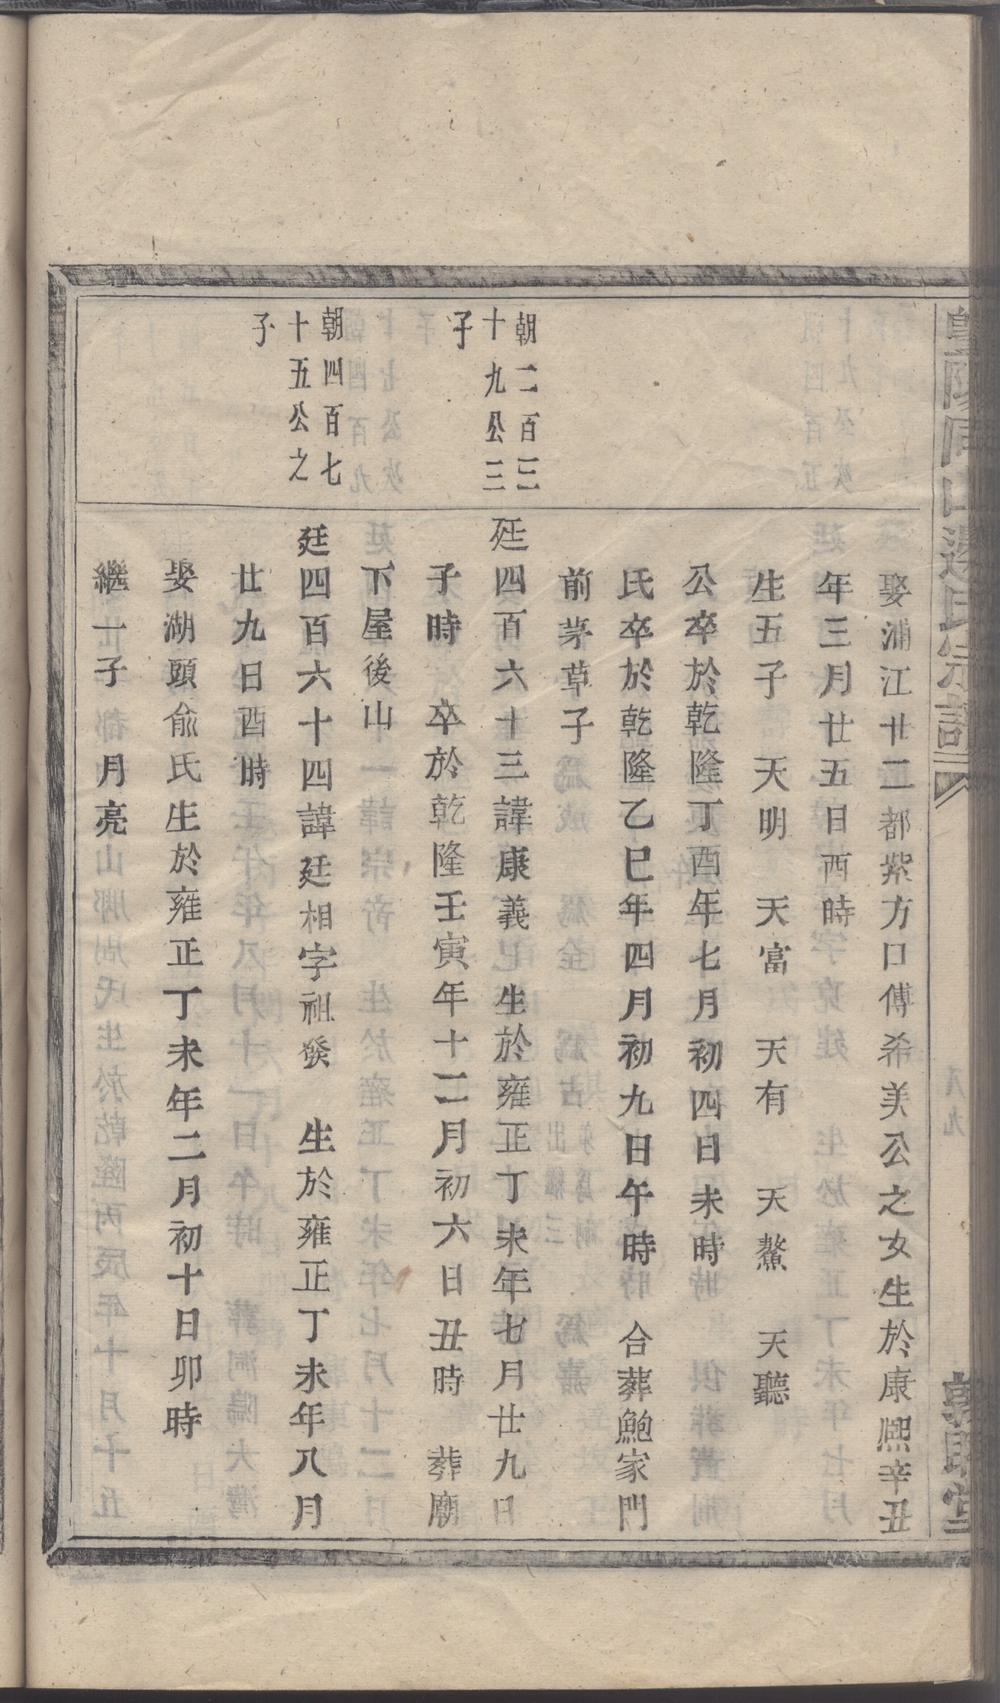 娶浦江廿二都紫方口傅希美公之女生於康熙辛丑
年三月廿五日酉時
生五子　天明　天富　天有　天鰲　天聽
公卒於乾隆丁酉年七月初四日未時
氏卒於乾隆乙巳年四月初九日午時　合葬鮑家門
前茅草子
朝二百三
十九公三
子
廷四百六十三諱康義　生於雍正丁未年七月廿九日
子時　卒於乾隆壬寅年十二月初六日丑時　葬廟
下屋後山
朝四百七
十五公之
子
廷四百六十四諱廷相字祖發　生於雍正丁未年八月
廿九日酉時
娶湖頭俞氏生於雍正丁未年二月初十日卯時
繼一子　月亮